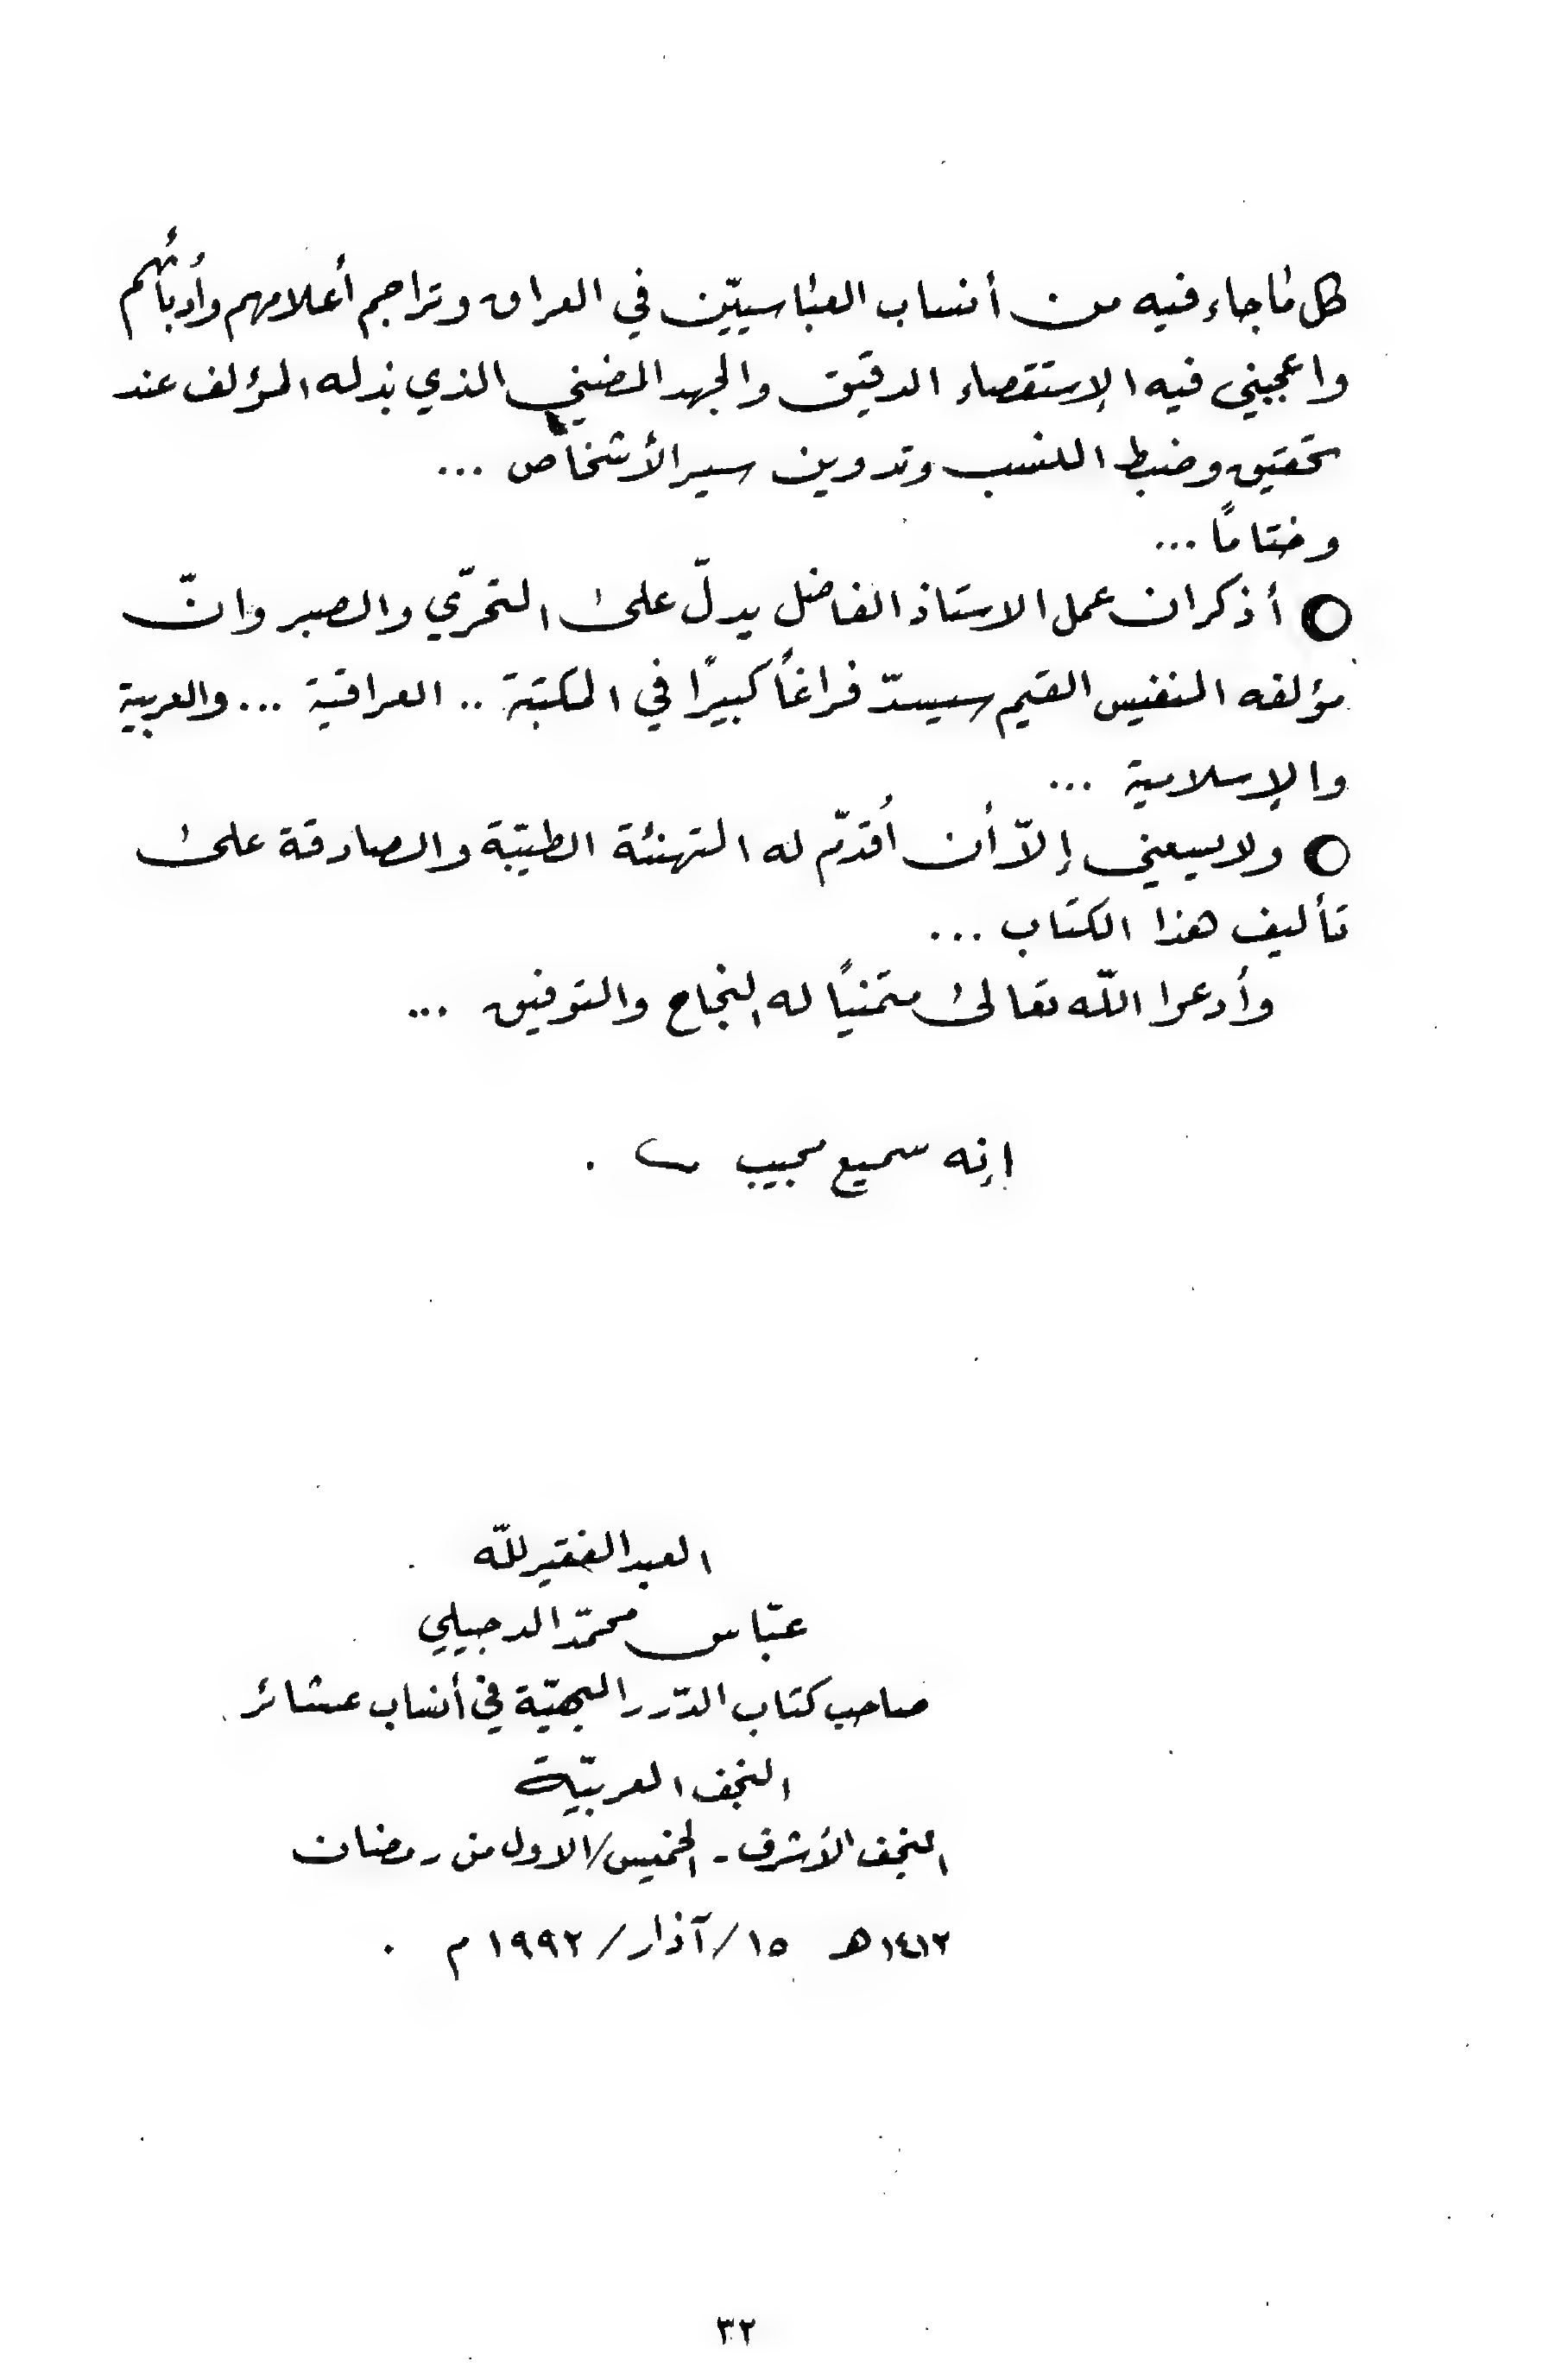 كل ما جاء فيه من أنساب العبّاسييّن في العراق وتراجم أعلامهم وأُدبائهم
واعجبني فيه الإستقصاء الدقيق والجهد المضني الذي بذله المؤلف عند
تحقيق وضبط النسب وتدوين سير الأشخاص ...
وختامًا ...
○ أذكر ان عمل الاستاذ الفاضل يدلّ على التحرّي والصبر وانّ
مؤلفه النفيس القيم سيسدّ فراغاً كبيرًا في المكتبة .. العراقية ... والعربية
والإسلامية ...
○ ولا يسعني إلاّ أن أُقدّم له التهنئة الطيّبة والصادقة على
تأليف هذا الكتاب ...
وأدعوا اللّه تعالى متمنيًا له النجاح والتوفيق ...
إنه سميع مجيب .
العبد الفقير للّه
عبّاس محمّد الدجيلي
صاحب كتاب الدّرر البهيّة في أنساب عشائر
النجف العربيّة
النجف الأشرف - الخميس/الاول من رمضان
١٤١٢هـ ١٥/آذار/١٩٩٢ م .
٣٢